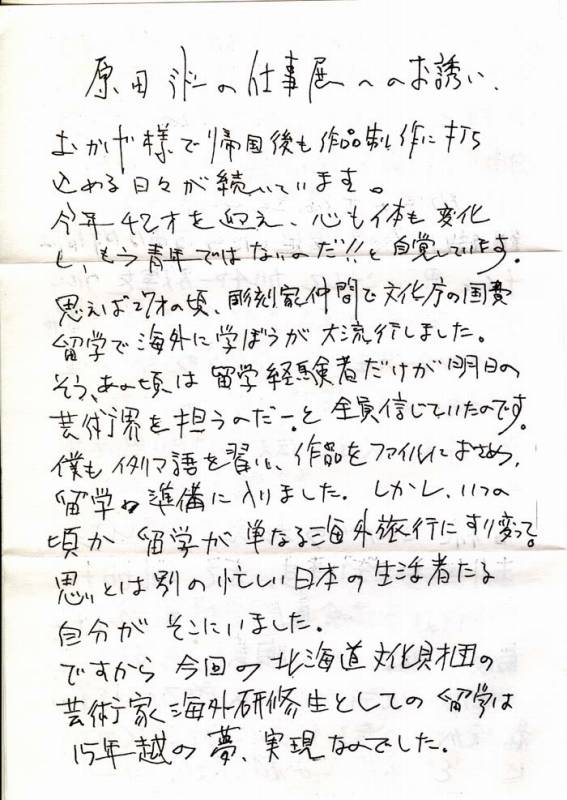 原田ミドーの仕事展へのお誘い.
おかげ様で帰国後も作品制作に打ち
込める日々が続いています。
今年42才を迎え、心も体も変化
し、もう青年ではないのだ!!と自覚しています.
思えば27才の頃、彫刻家仲間で文化庁の国費
留学で海外に学ぼうが大流行しました。
そう、あの頃は留学経験者だけが明日の
芸術界を担うのだー。と全員信じていたのです。
僕もイタリア語を習い、作品をファイルにおさめ,
留学の準備に入りました. しかし、いつの
頃か留学が単なる海外旅行にすり変って。
思いとは別の忙しい日本の生活者たる
自分がそこにいました.
ですから今回の北海道文化財団の
芸術家海外研修生としての留学は
15年越の夢、実現なのでした.